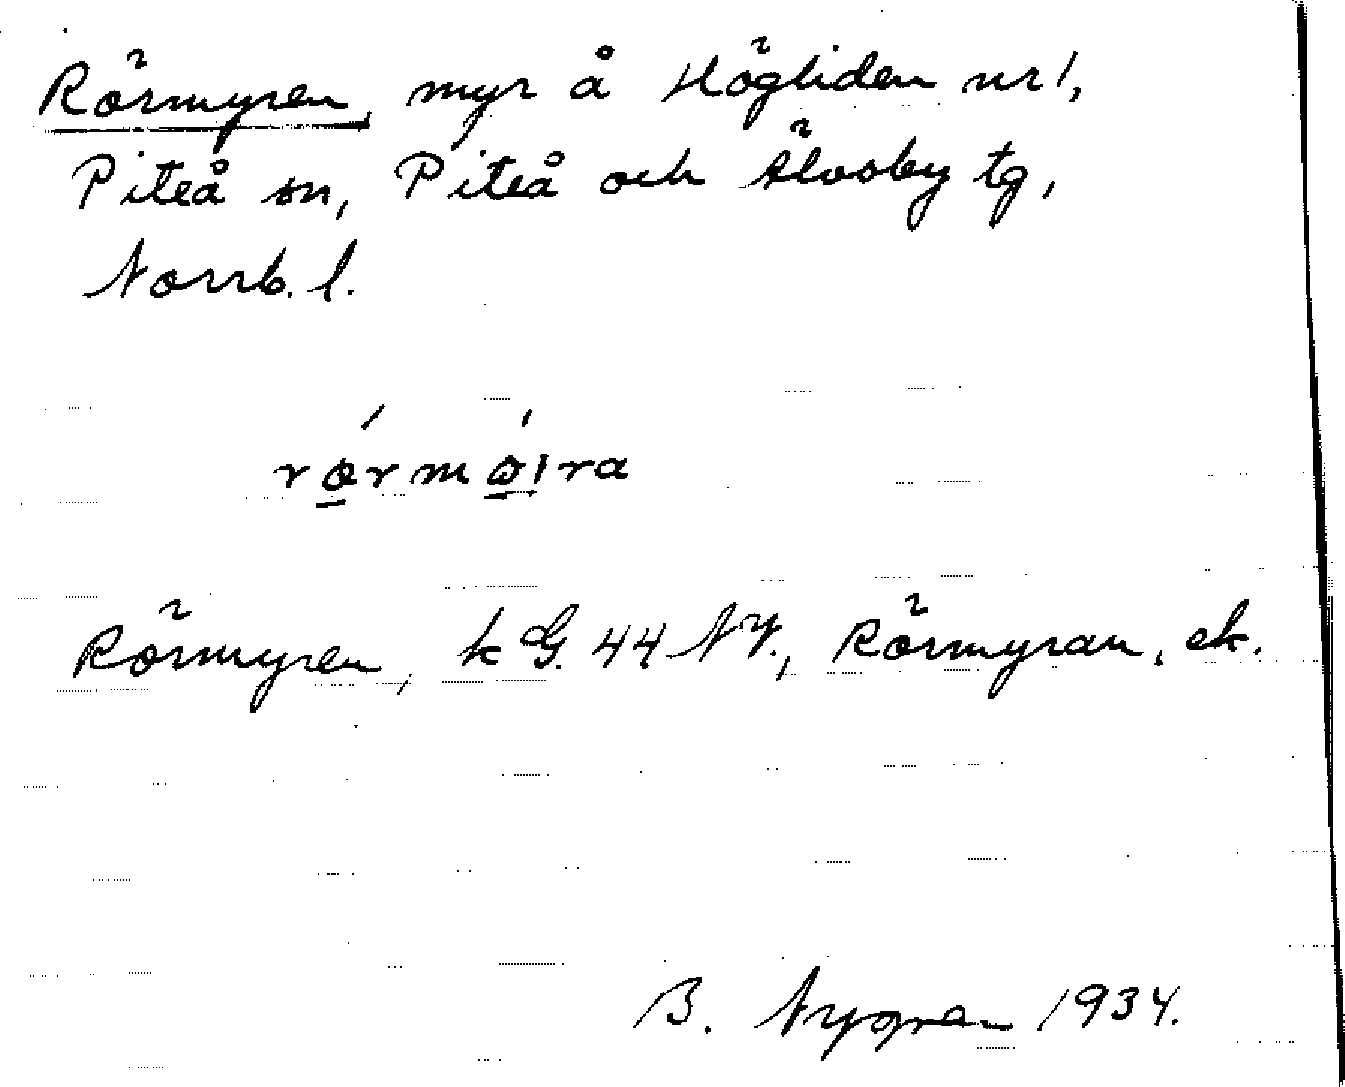 Rörmyren, myr å Högliden nr 1,
Piteå sn, Piteå och Älvsby tg,
Norrb. l.
rørmøira
Rörmyren, k G. 44 NV., Rörmyran, ek.
B. Nygren 1934.